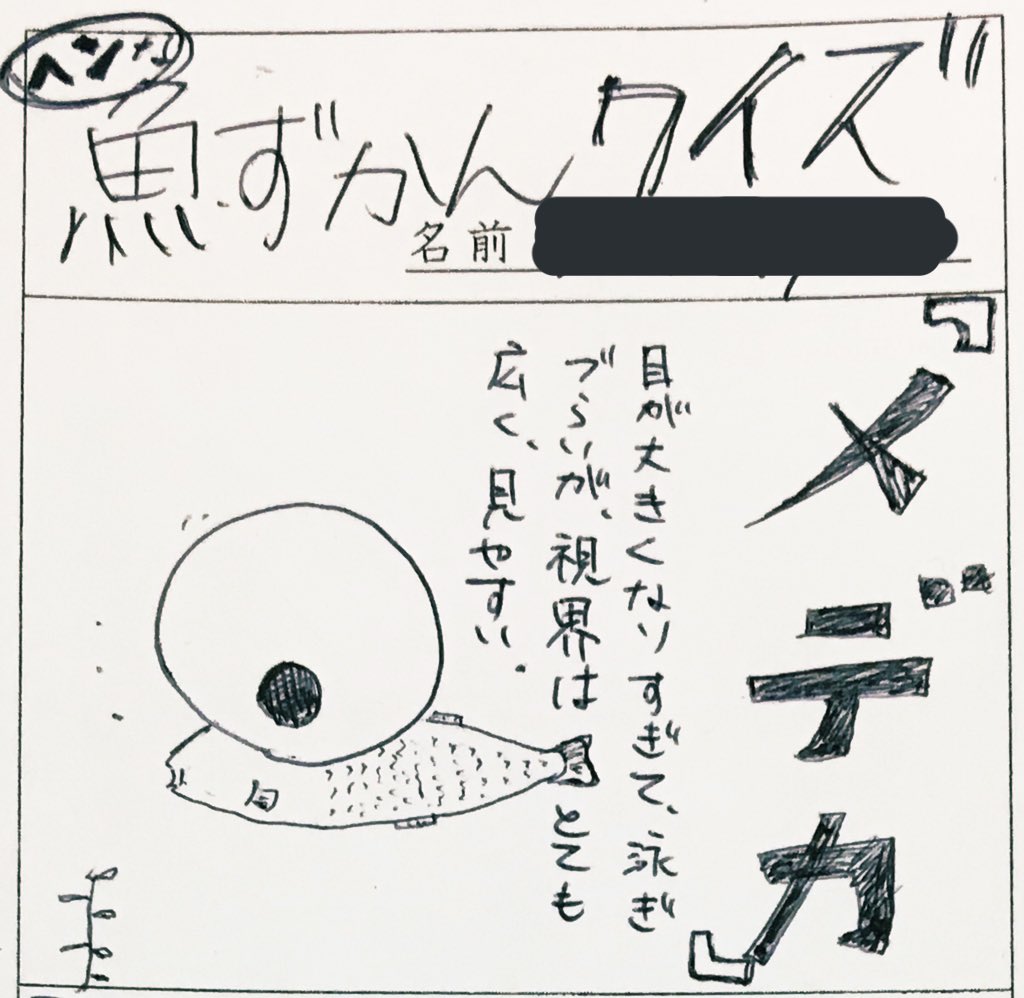 ヘンな
魚ずかんクイズ
名前
『メデカ』
目が大きくなりすぎて、泳ぎ
づらいが、視界はとても
広く、見やすい。